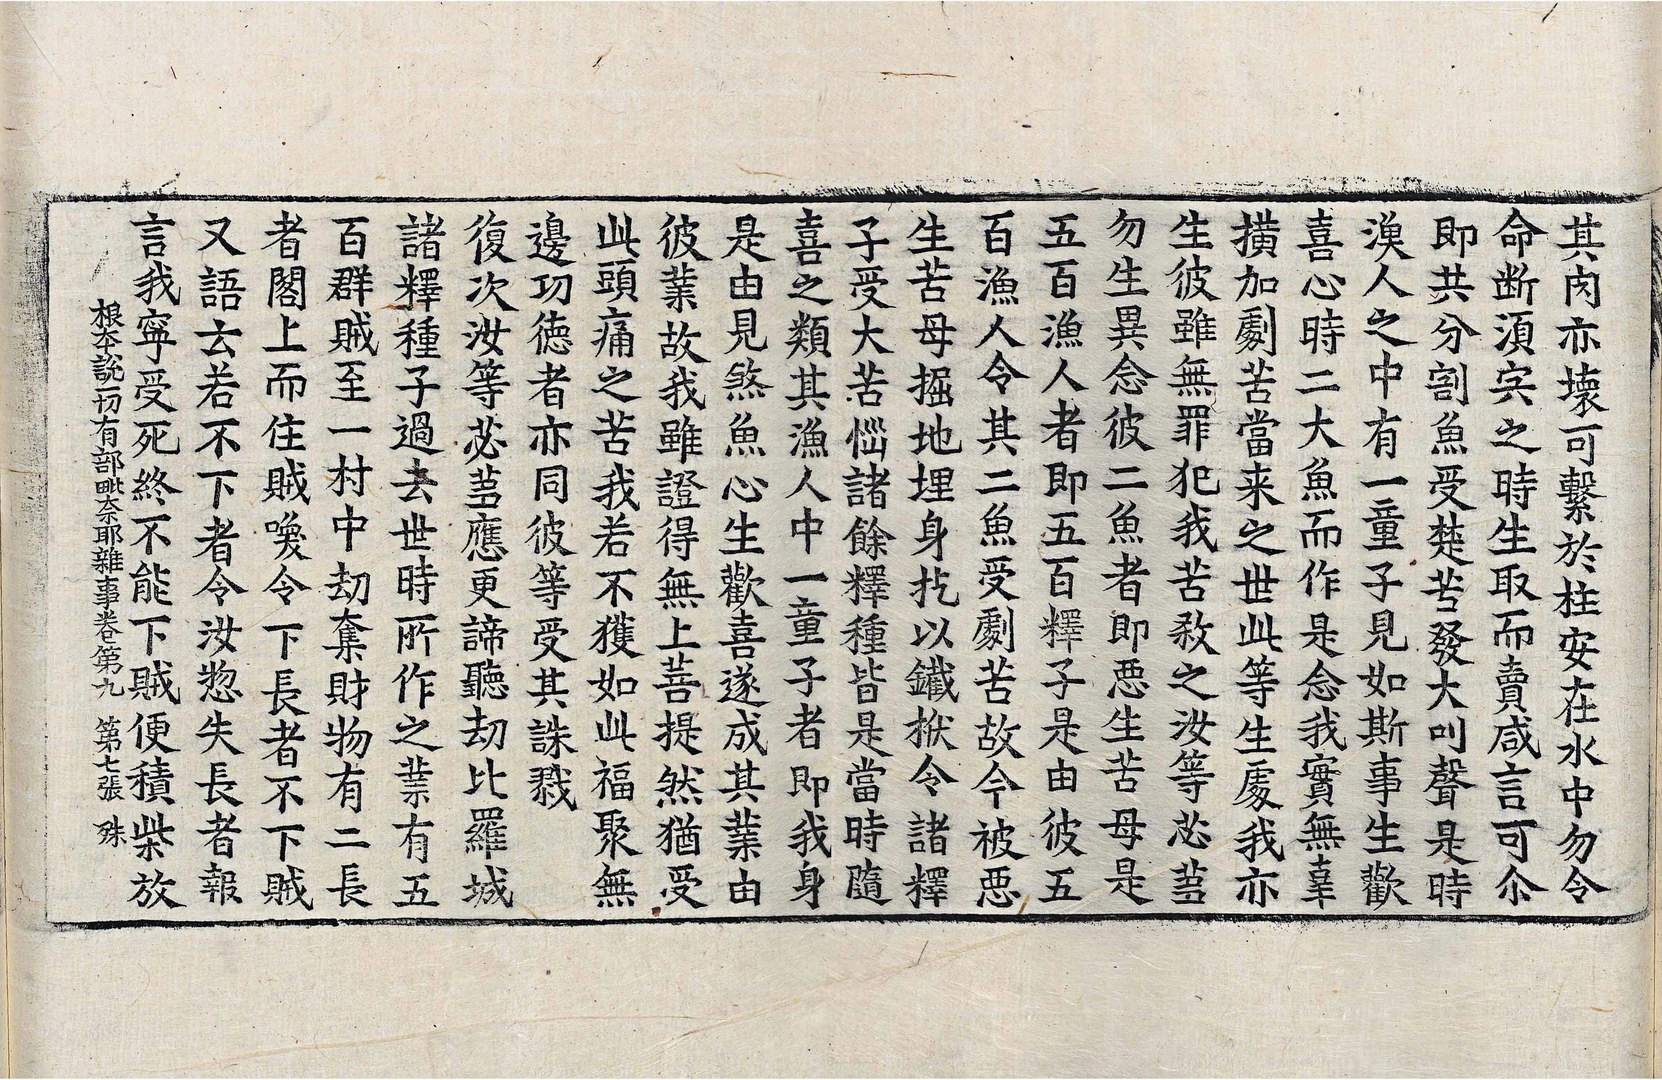 其肉亦壞可繫於柱安在水中勿令
命断湏臾之時生取而賣咸言可尒
即共分割魚受楚苦發大叫聲是時
漁人之中有一童子見如斯事生歡
喜心時二大魚而作是念我實無辜
橫加劇苦當来之世此等生處我亦
生彼雖無罪犯我苦殺之汝等苾蒭
勿生異念彼二魚者即惡生苦母是
五百漁人者即五百釋子是由彼五
百漁人令其二魚受劇苦故今被惡
生苦母掘地埋身扢以鐵杴令諸釋
子受大苦惱諸餘釋種皆是當時隨
喜之類其漁人中一童子者即我身
是由見煞魚心生歡喜遂成其業由
彼業故我雖證得無上菩提然猶受
此頭痛之苦我若不獲如此福聚無
邊功德者亦同彼等受其誅戮
復次汝等苾蒭應更諦聽劫比羅城
諸釋種子過去世時所作之業有五
百群賊至一村中劫奪財物有二長
者閣上而住賊喚令下長者不下賊
又語云若不下者令汝惣失長者報
言我寧受死終不能下賊便積柴放
根本說一切有部毗奈耶雜事卷第九 第七張 殊